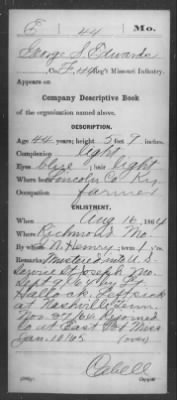 F | 44 | Mo.
George S. Edwards
Co. F, 44 Reg't Missouri Infantry.
Appears on
Company Descriptive Book
of the organization named above.
DESCRIPTION.
Age 44 years; height 5 feet 9 inches.
Complexion light
Eyes blue; hair light
Where born Lincoln Co Ky.
Occupation farmer
ENLISTMENT.
When Aug 16, 1864
Where Richmond Mo.
By Henry; term 1 y'rs.
Remarks: Mustered into U.S.
Service St Joseph Mo.
Sept 9/64 by Lt.
Hallock. Left sick
at Nashville Tenn.
Nov. 27/64 Rejoined
Co at East Pt Miss
Jan. 18/65 (over)